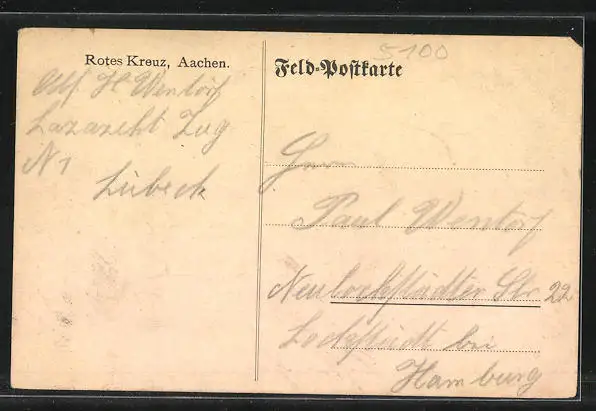 5100
Rotes Kreuz, Aachen.
Feld-Postkarte
H. Wentorf
Lazareht Zug
N 1
Lübeck
Herrn
Paul Wentorf
Neulockstädter Str 22
Lockstädt bei
Hamburg